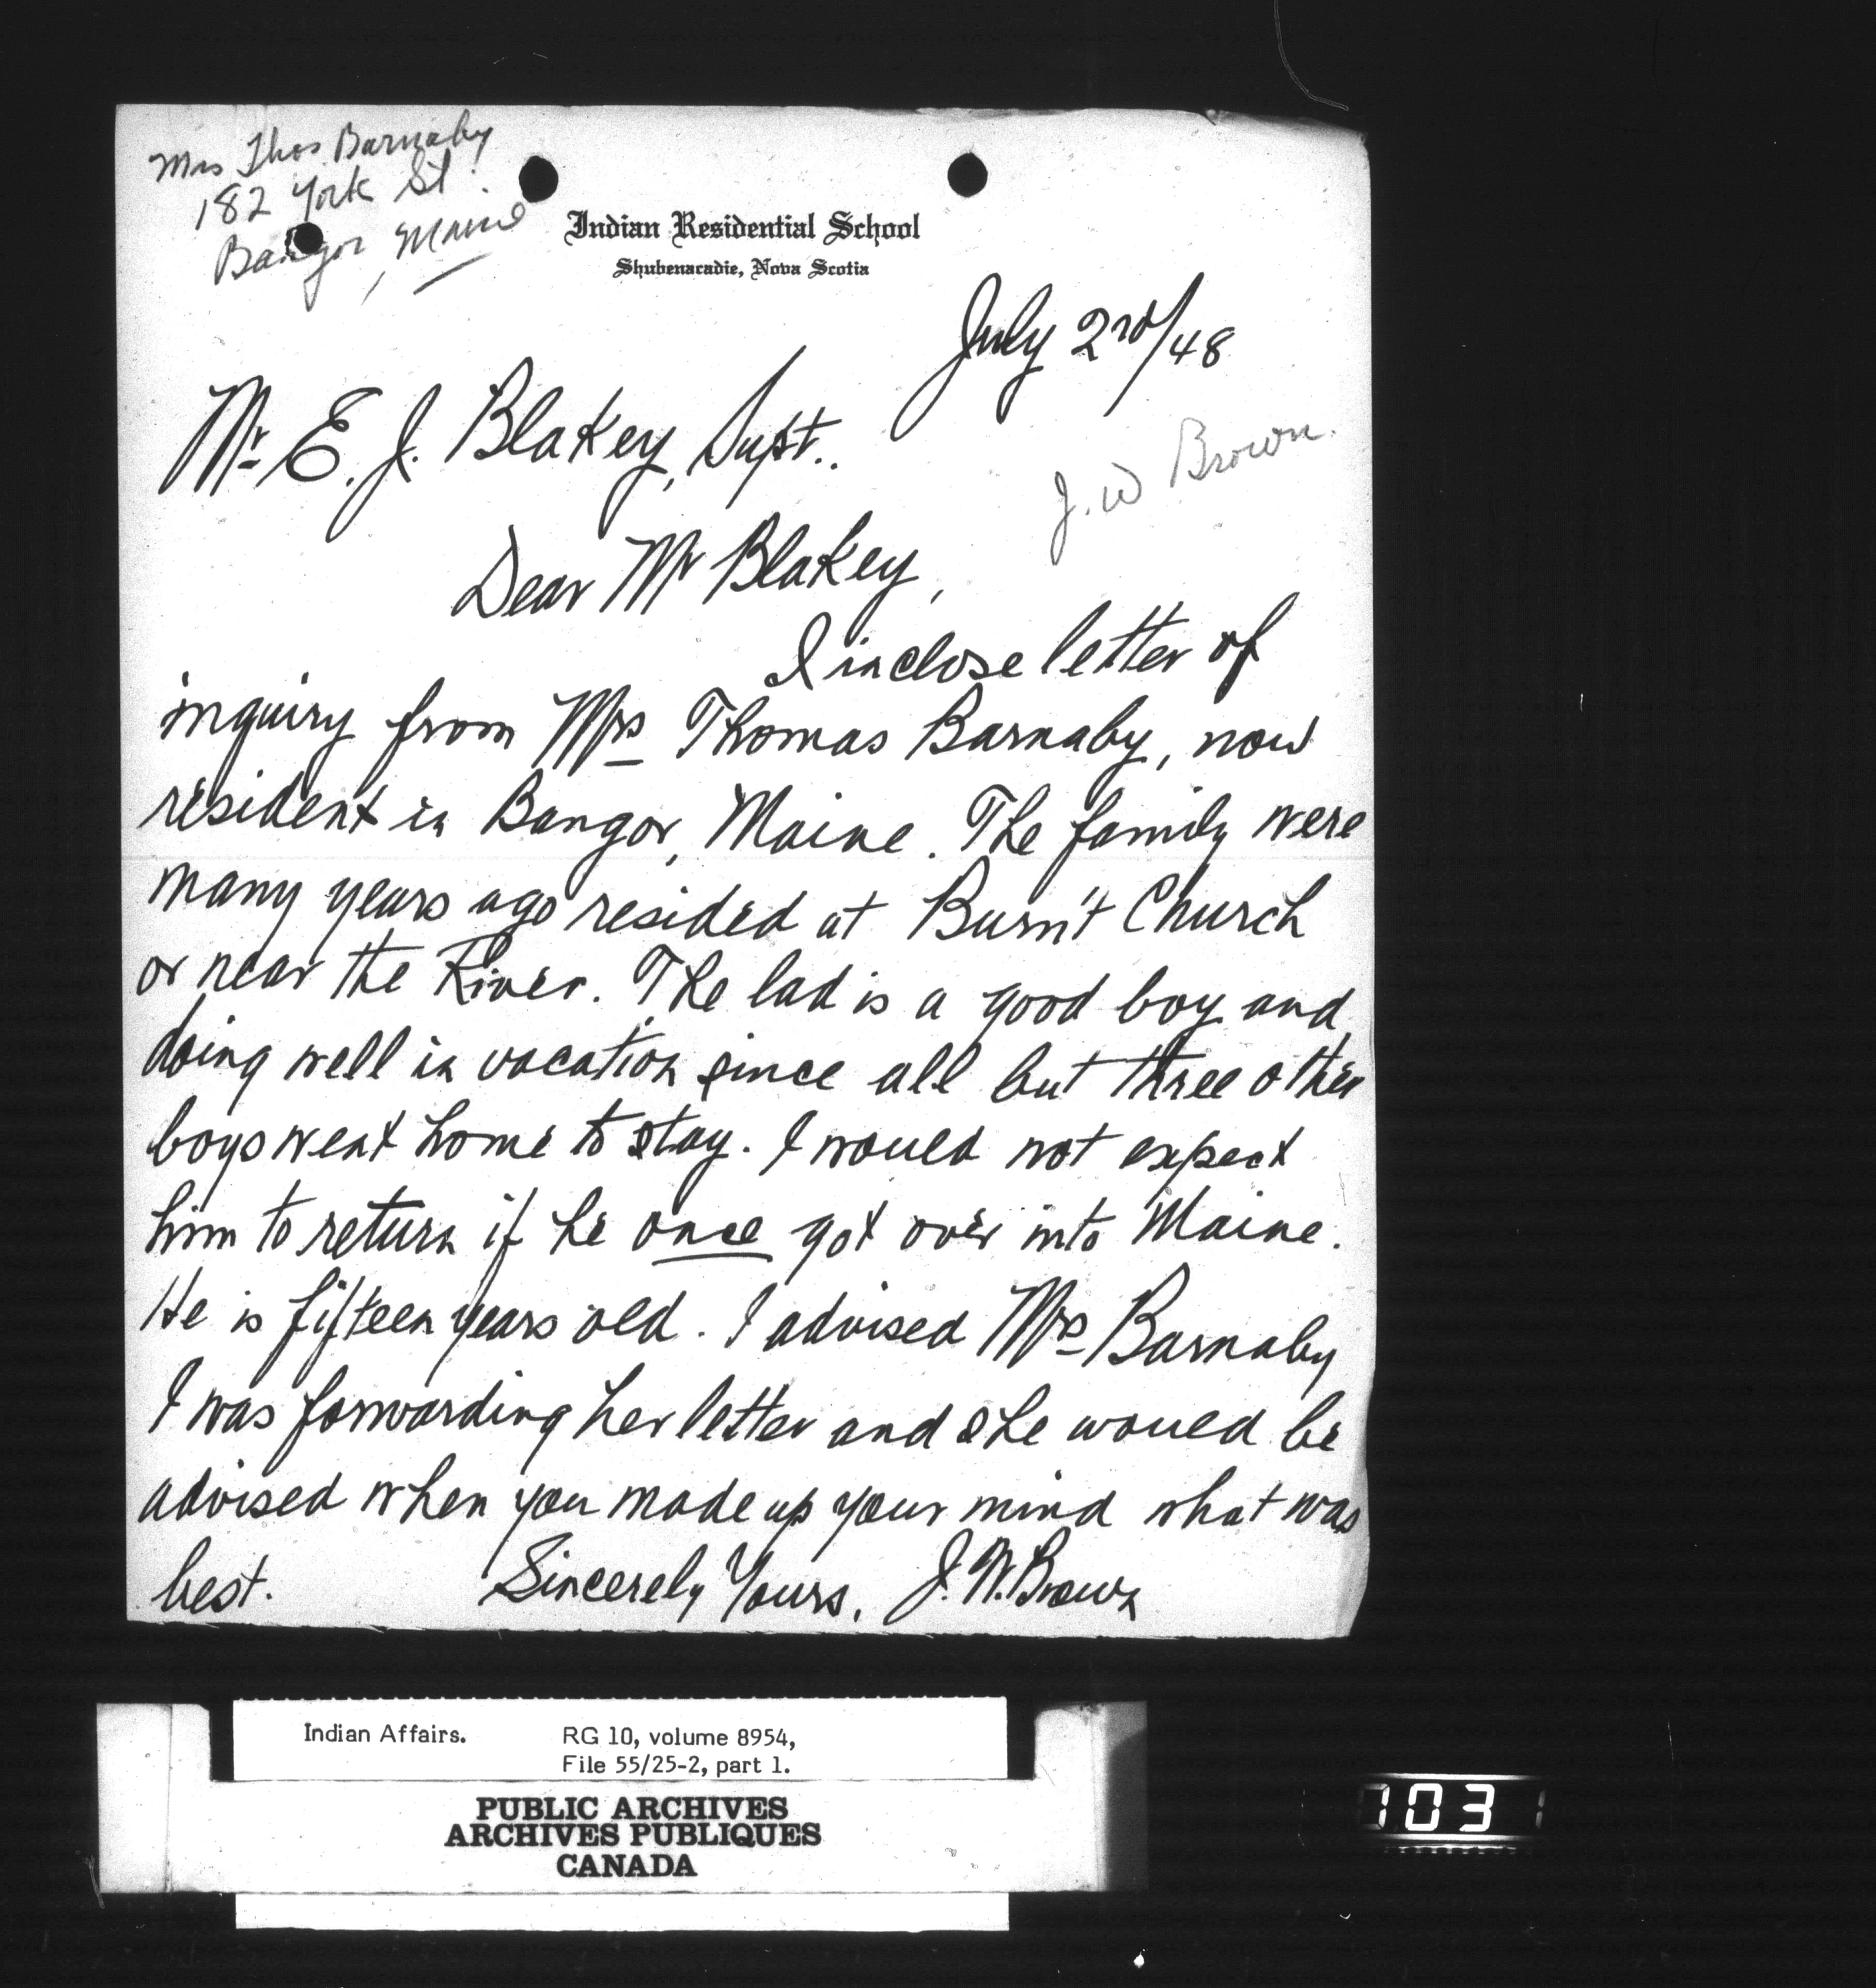 Mrs Thos. Barnaby
182 York St.
Bangor, Maine
Indian Residential School
Shubenacadie, Nova Scotia
July 2nd/48
Mr E. J. Blakey, Supt..
J. W Brown.
Dear Mr Blakey,
I inclose letter of
inquiry from Mrs Thomas Barnaby, now
resident in Bangor, Maine. The family were
many years ago resided at Burn't Church
or near the River. The lad is a good boy and
doing well in vacation since all but three other
boys went home to stay. I would not expect
him to return if he once got over into Maine.
He is fifteen years old. I advised Mrs Barnaby
I was forwarding her letter and she would be
advised when you made up your mind what was
best. Sincerely Yours, J. W. Brown
Indian Affairs. RG 10, volume 8954,
File 55/25-2, part 1.
PUBLIC ARCHIVES
ARCHIVES PUBLIQUES
CANADA
1031